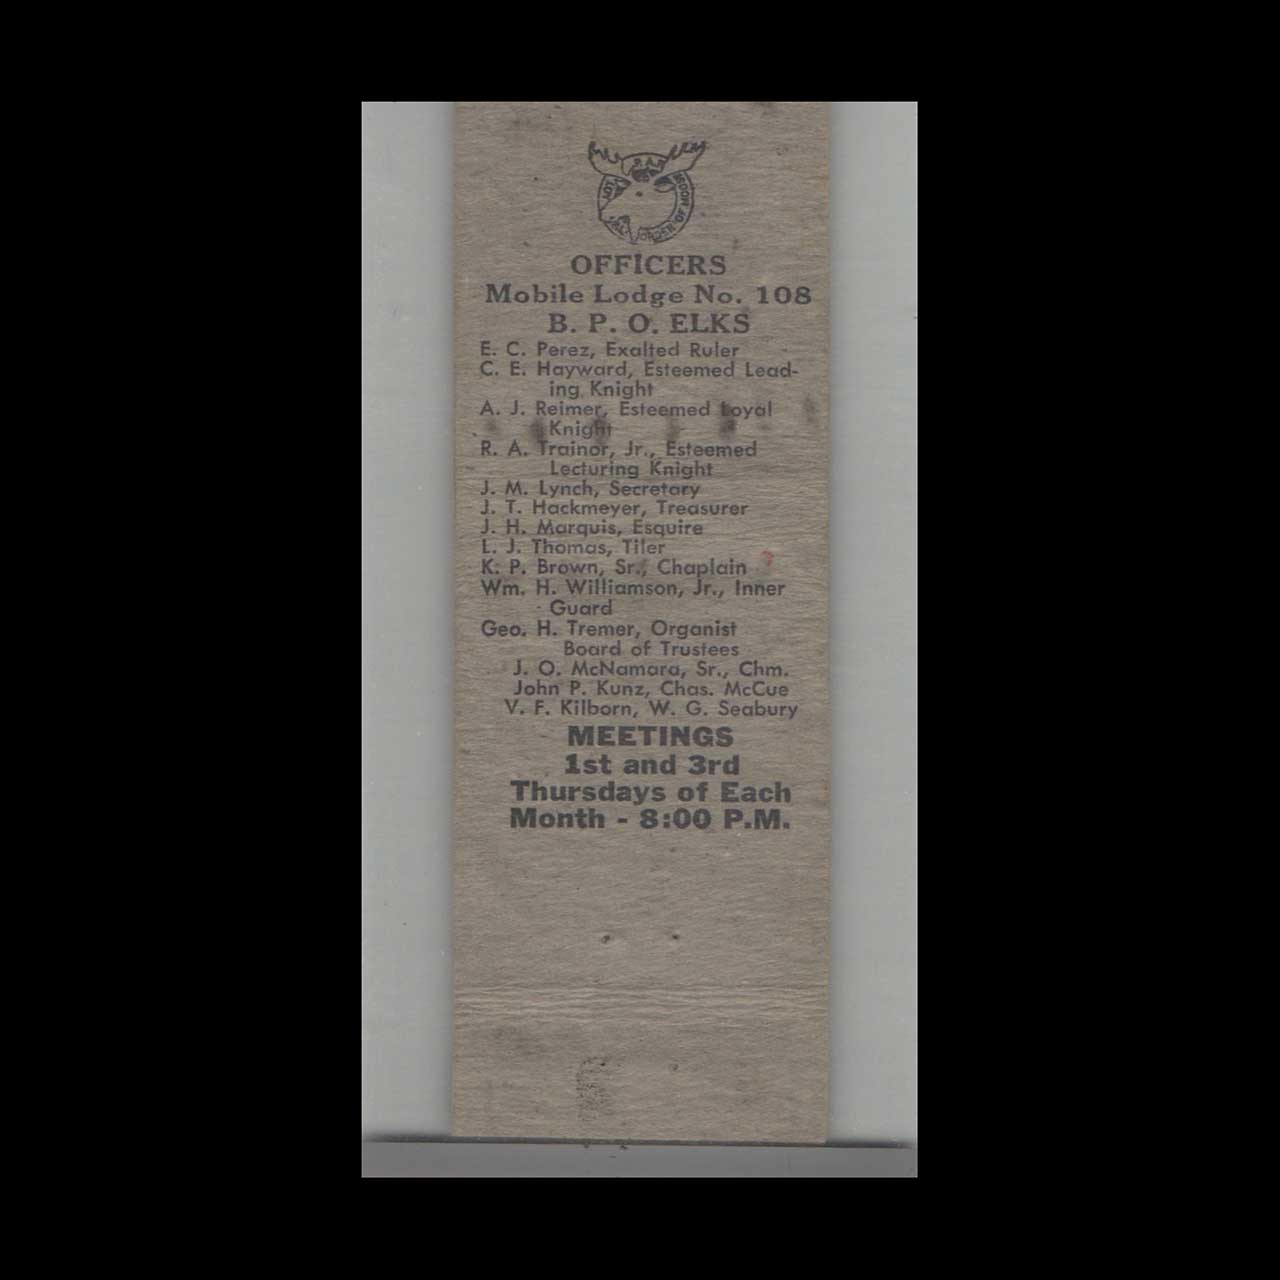 P. A. P.
LOYAL ORDER OF MOOSE
OFFICERS
Mobile Lodge No. 108
B. P. O. ELKS
E. C. Perez, Exalted Ruler
C. E. Hayward, Esteemed Lead-
ing Knight
A. J. Reimer, Esteemed Loyal
Knight
R. A. Trainor, Jr., Esteemed
Lecturing Knight
J. M. Lynch, Secretary
J. T. Hackmeyer, Treasurer
J. H. Marquis, Esquire
L. J. Thomas, Tiler
K. P. Brown, Sr., Chaplain
Wm. H. Williamson, Jr., Inner
Guard
Geo. H. Tremer, Organist
Board of Trustees
J. O. McNamara, Sr., Chm.
John P. Kunz, Chas. McCue
V. F. Kilborn, W. G. Seabury
MEETINGS
1st and 3rd
Thursdays of Each
Month - 8:00 P.M.